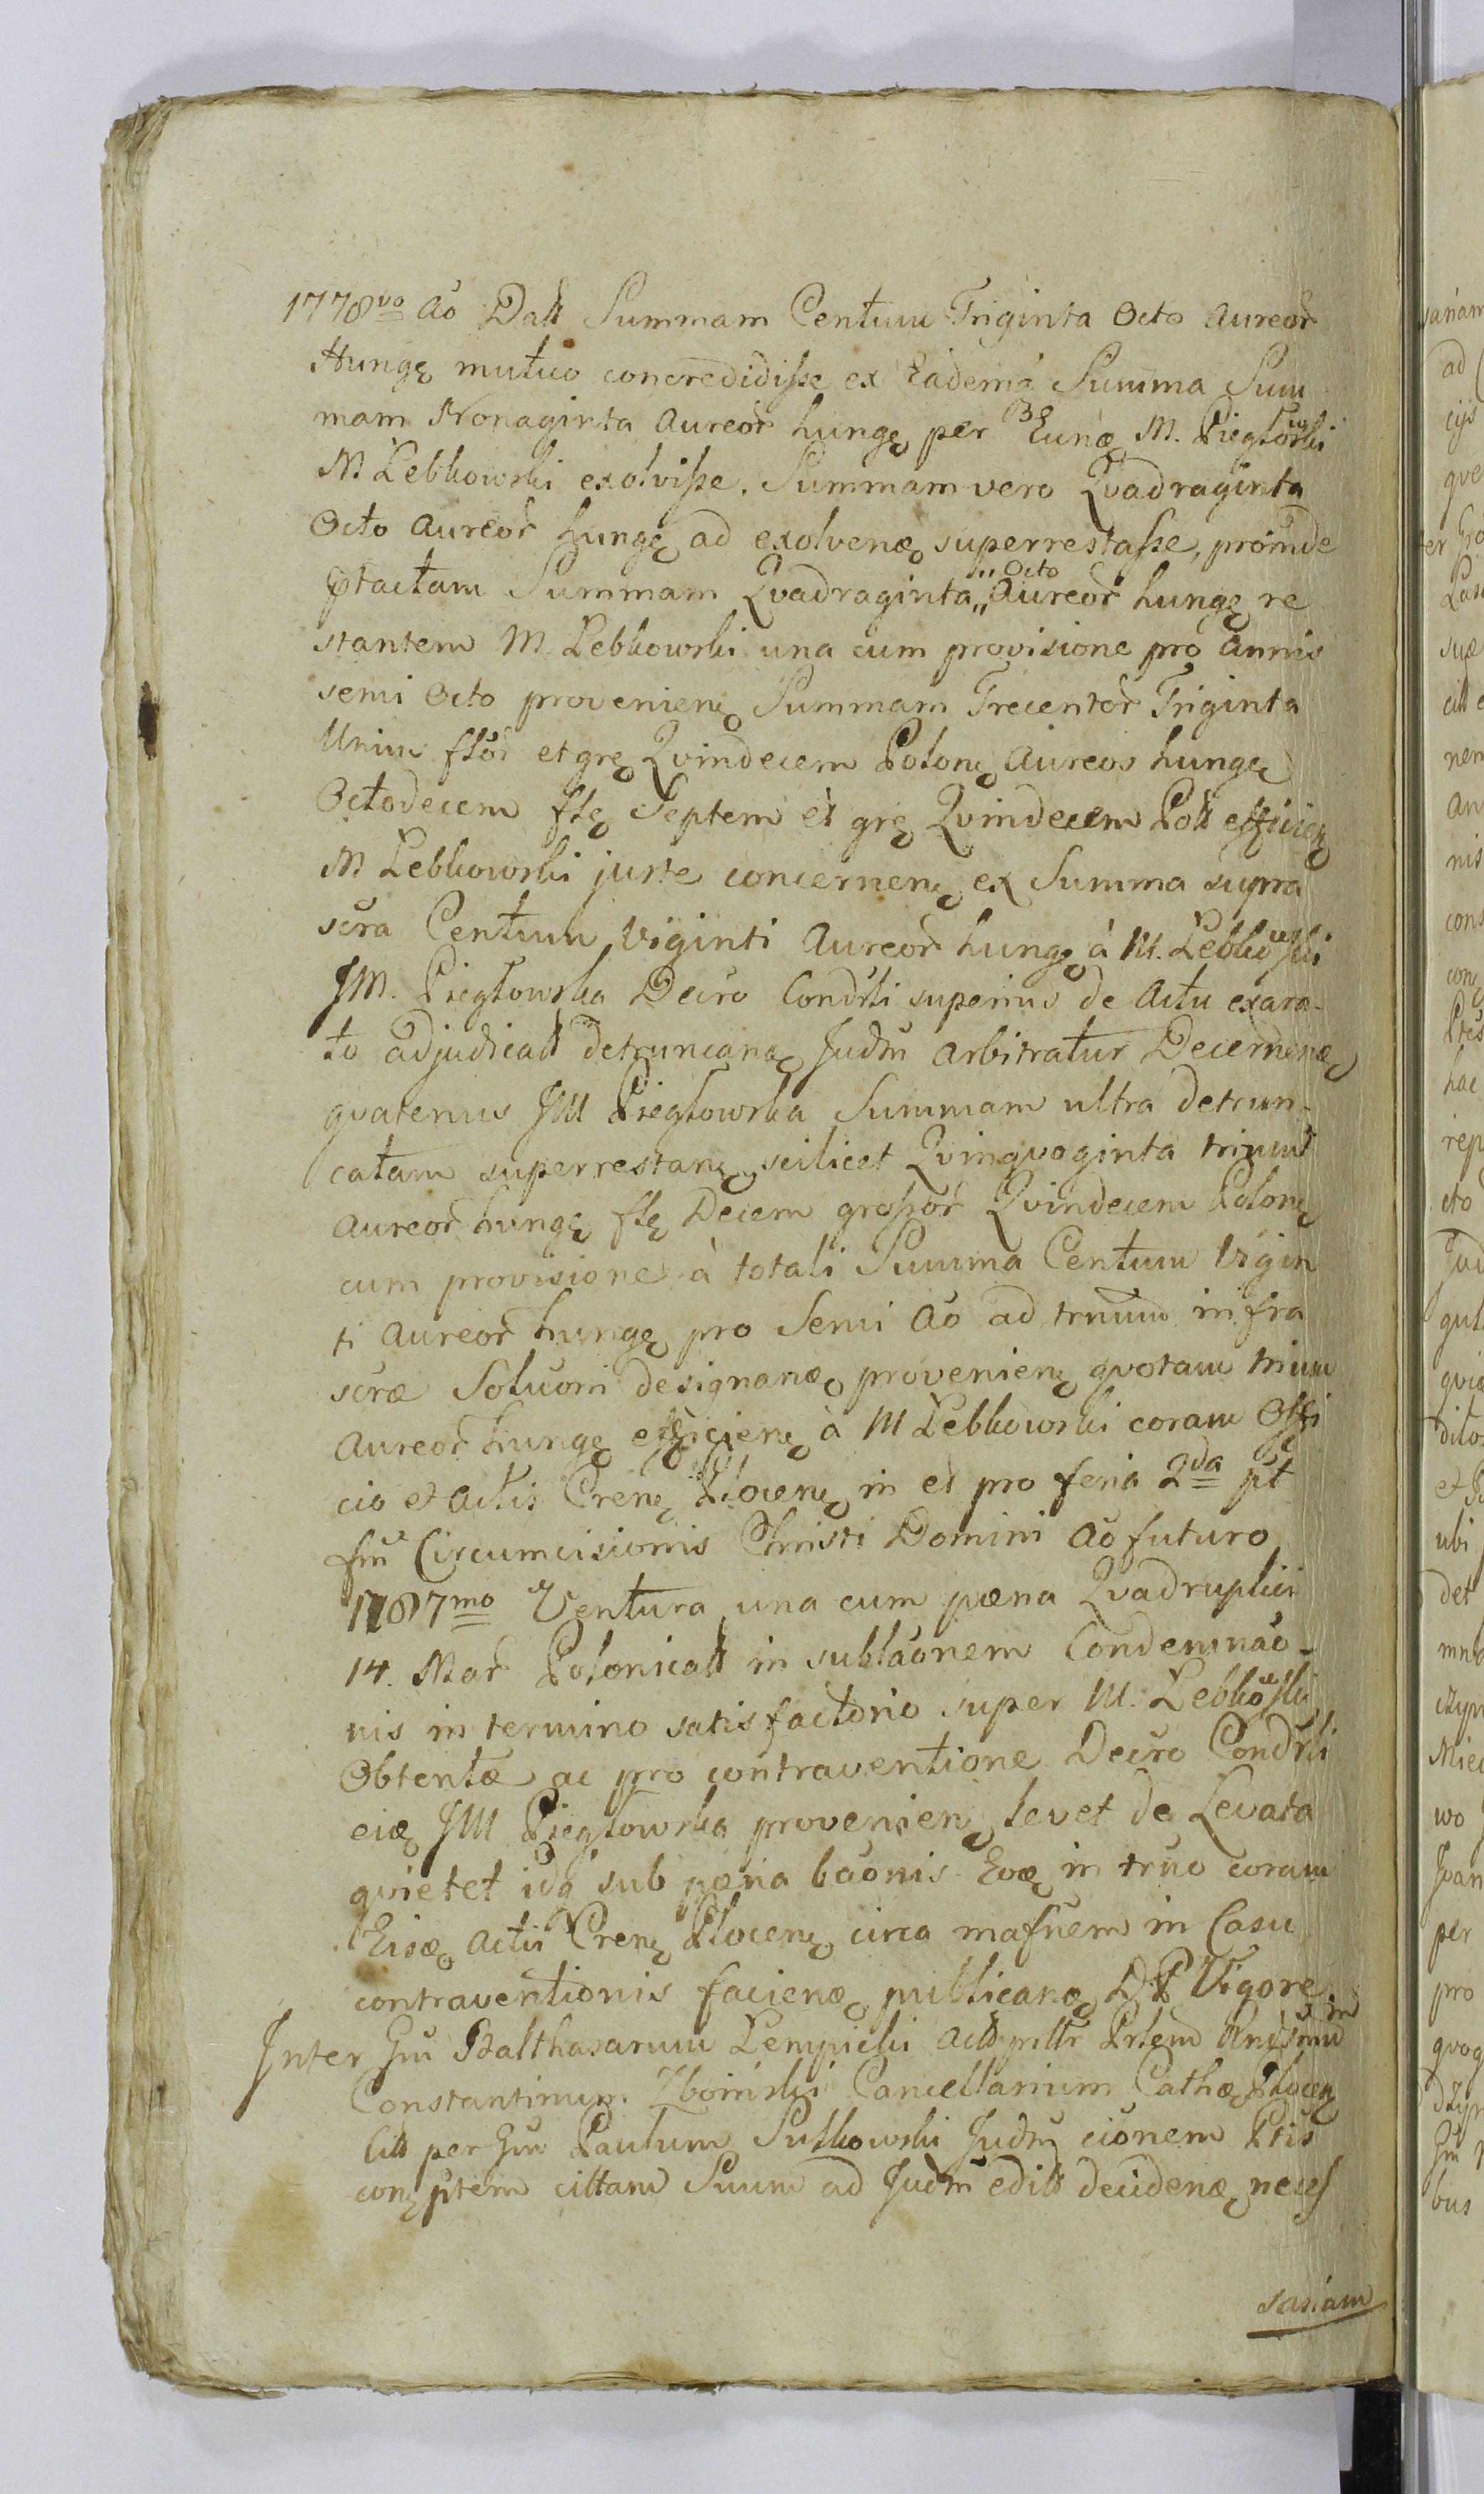 1778vo Ao Datt Summam Centum Triginta Octo Aureor
Hungę mutuo concredidisse ex Eademq Summa Sum
mam Nonaginta Aureor hungę per Eunę M. Piegłowski
M Łebkowski exolvisse. Summam vero Qvadraginta
Octo Aureor hungę ad exolvenę superrestasse, proinde
ptactam Summam Qvadraginta „Octo„ Aureor hungę re
stantem M. Łebkowski una cum provisione pro Annis
semi Octo provenienę Summam Trecentor Triginta
Unius flor et grę Qvindecem Polonę Aureos hungę
Octodecem flę Septem et grę Qvindecem Poll efficienę
M Łebkowski juste concernenę ex Summa supra
scra Centum Viginti Aureor hungę à M. Łebkowski
JM. Piegłowska Decro Condrli superius de Actu exara-
to adjudicatt detruncanę Judm arbitratur Decernenę
qvatenus JM Piegłowska Summam ultra detrun-
catam superrestanę scilicet Qvinqvaginta trium
Aureor hungę flę Decem grossor Qvindecem Polonę
cum provisione à totali Summa Centum Vigin
ti Aureor hungę pro Semi Ao ad trnum infra
scræ Soluoni designanę provenienę qvotam trium
Aureor hungę efficienę à M Łebkowski coram Offi
cio et Actis Crenę Plocenę in et pro feria 2da pt
fm Circumcisionis Christi Domini Ao futuro
1787mo Ventura una cum pæna Qvadruplici
14. Mar Polonicall in sublaonem Condemnao-
nis in termino satisfactorio super M. Łebkowski
Obtentæ ac pro contraventione Decro Condrli
eię JM Piegłowska provenienę levet de Levata
qvietet idq sub pæna baonis Evę in trno coram
Eisę Actis Crenę Plocenę circa mafnem in Casu
contraventionis facienę publicanę D.P. Vigore
Inter Gm Balthasarum Lempicki Act Constantinum Zboinski Cancellarium Cathę Plocenę
Citt per Gm Paulum Sutkowski Judm cionem Ptis
conę ptem cittam Suum ad Judm editt decidenę neces
sariam